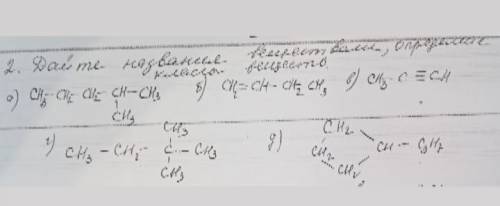 2. Дайте названия веществам, определите
классы веществ.
а) CH3-CH2-CH2-CH-CH3
CH3
б) CH2=CH-CH2-CH3
в) CH3-C≡CH
г) CH3-CH2-C-CH3
CH3
CH3
д) CH2
CH2
CH2
CH-C3H7